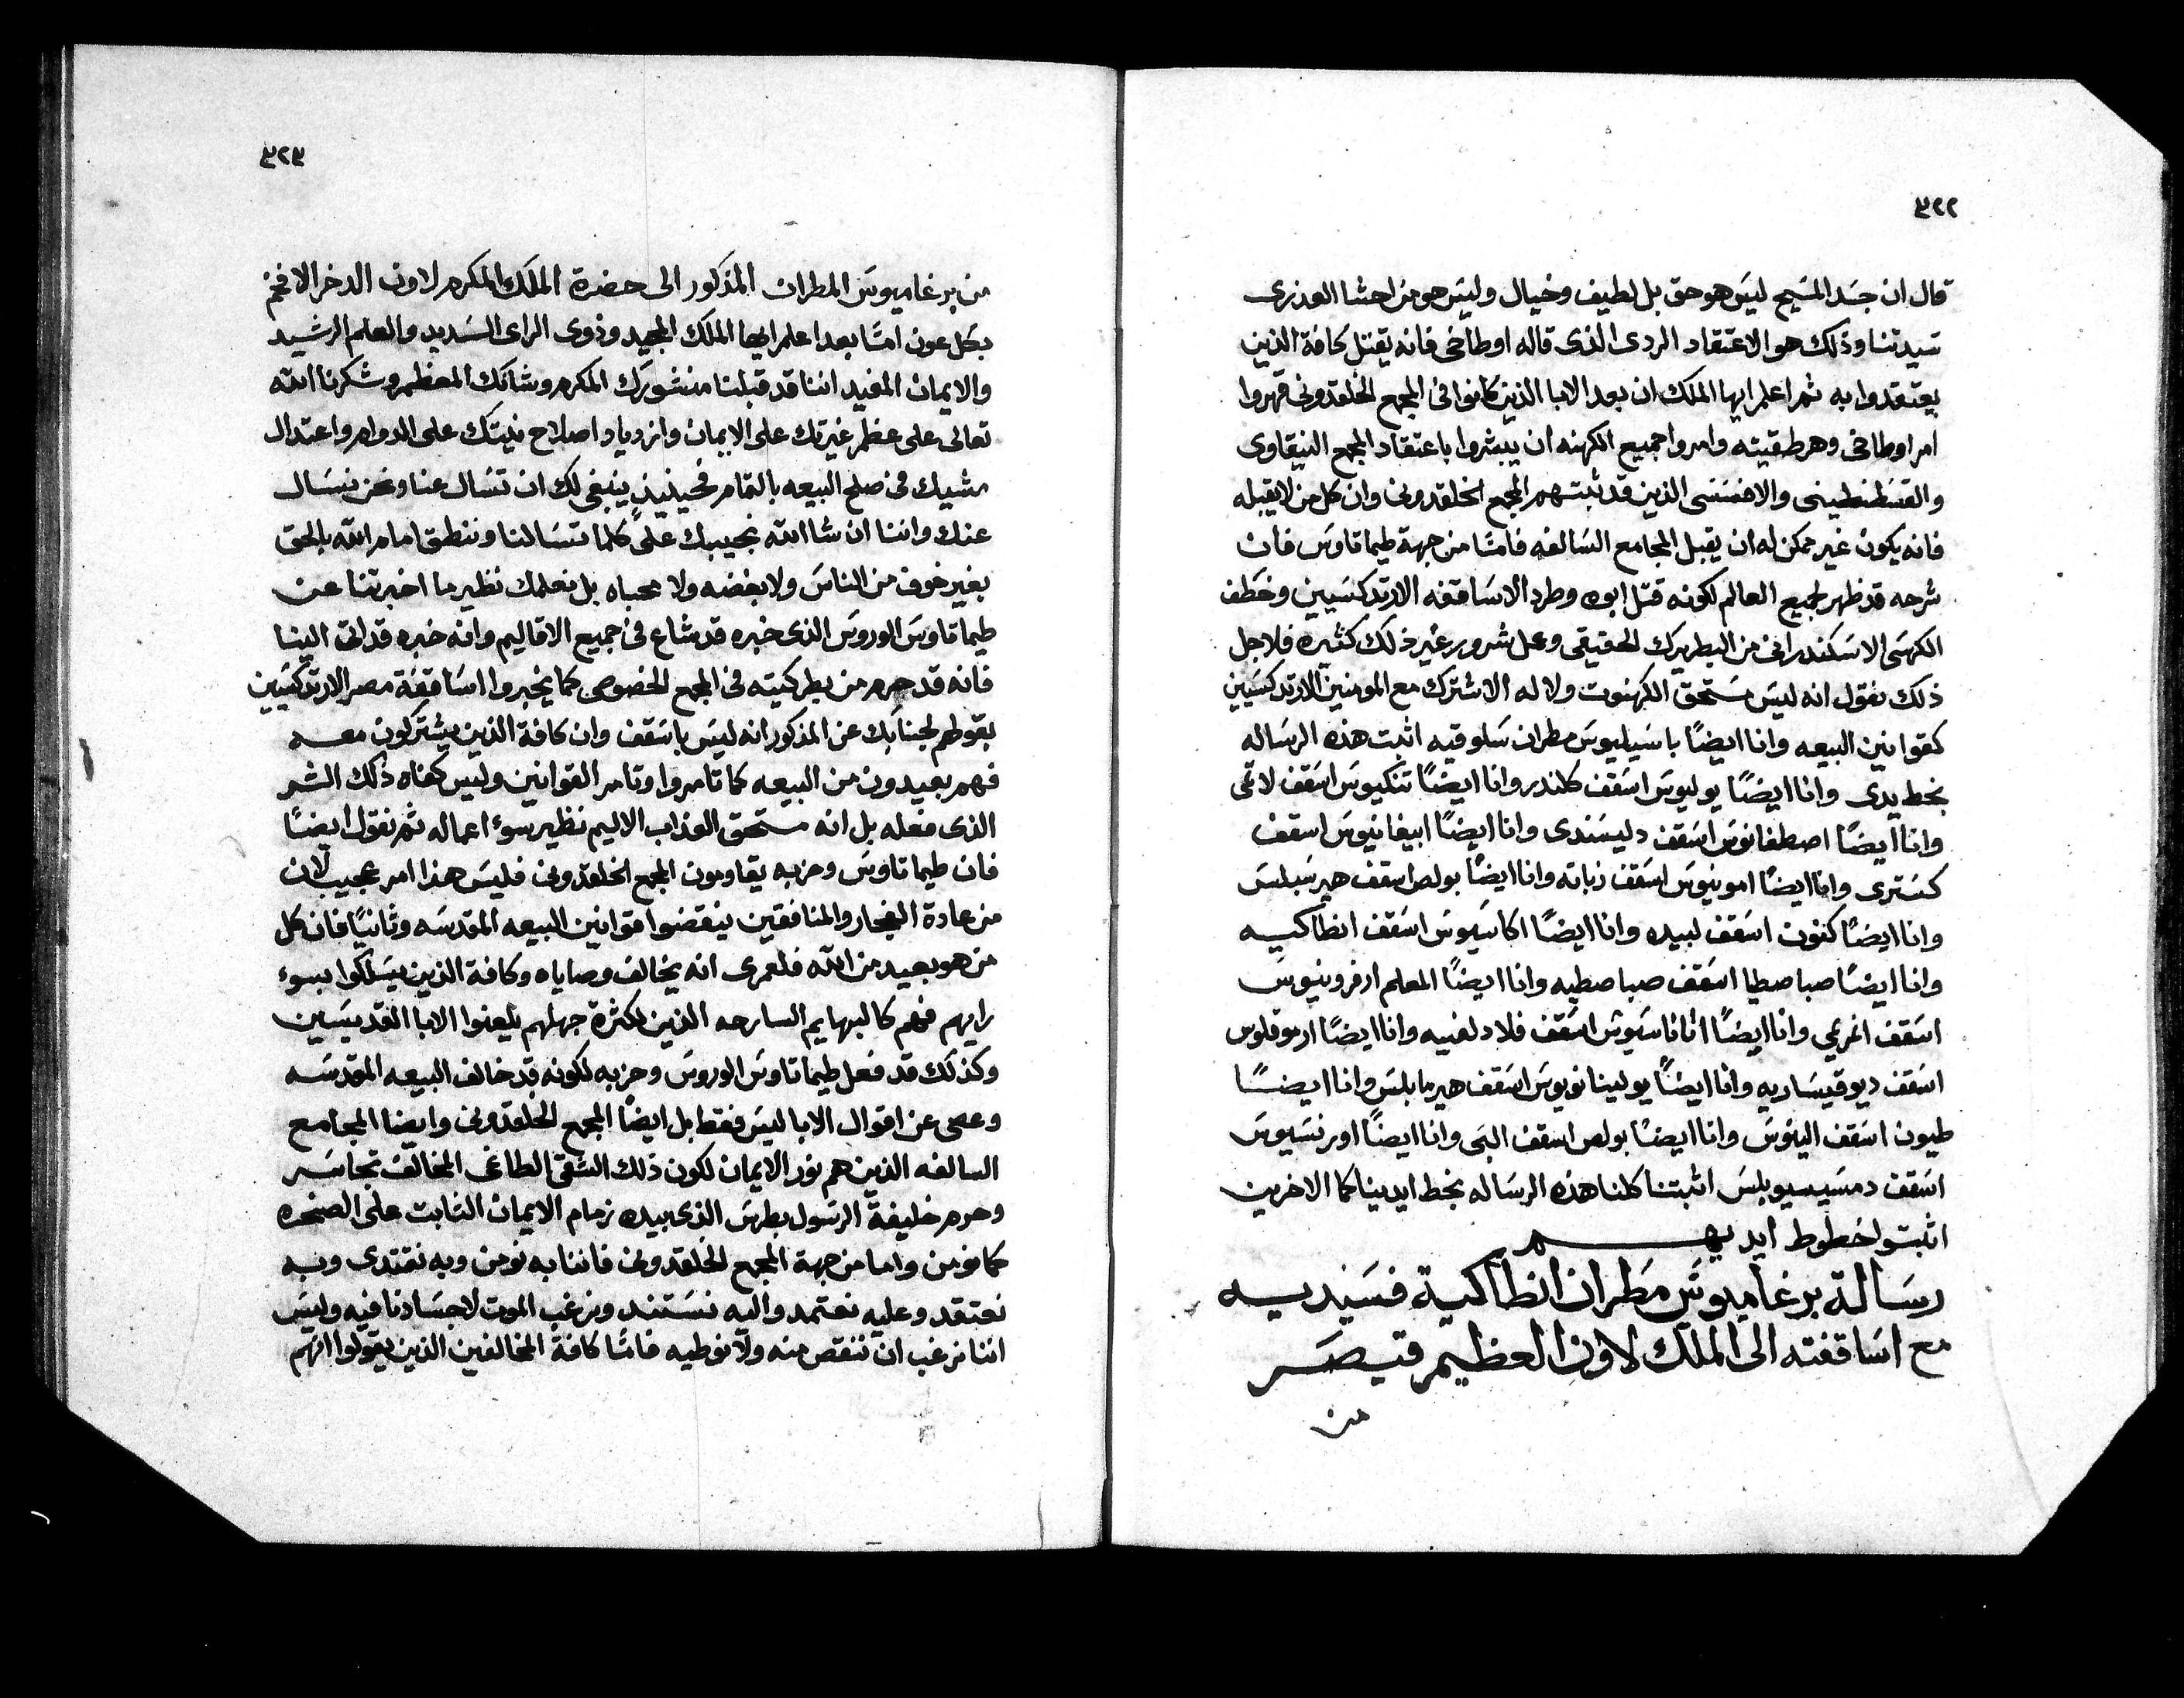 ٣٢٢
قال ان جسد المسيح ليس هو حق بل لطيف وخيال وليس هو من احشا العذرى
سيدتنا وذلك هو الاعتقاد الردى الذى قاله اوطاخى فانه يقتل كافة الذين
يعتقدوا به ثم اعلم ايها الملك ان بعد الابا الذين كانوا فى المجمع الخلقدونى قهروا
امر اوطاخى وهرطقيته وامروا جميع الكهنه ان يبشروا باعتقاد المجمع النيقاوى
والقسطنطينى والافسسى الذين قد ثبتهم المجمع الخلقدونى وان كل من لا يقبله
فانه يكون غير ممكن له ان يقبل المجامع السالفه فامّا من جهة طيماتاوس فان
شرحه قد ظهر لجميع العالم لكونه قتل ابوه وطرد الاساقفه الارتدكسيين وخطف
الكرسى الاسكندرانى من البطريرك الحقيقى وعمل شرور غير ذلك كثيره فلاجل
ذلك نقول انه ليس مستحق الكهنوت ولا له الاشتراك مع المومنين الارتدكسيين
كقوانين البيعه وانا ايضًا باسيليوس مطران سلوقيه اثبت هذه الرساله
بخط يدى وانا ايضًا يوليوس اسقف كلندر وانا ايضًا تنكيوس اسقف لاتمى
وانا ايضًا اصطفانوس اسقف دليسندى وانا ايضًا ابيفانيوس اسقف
كسترى وانا ايضًا امونيوس اسقف زباته وانا ايضًا بولص اسقف هيرنبلس
وانا ايضًا كنون اسقف لبيده وانا ايضًا اكاسيوس اسقف انطاكيه
وانا ايضًا صباصطيا اسقف صباصطيه وانا ايضًا المعلم ارفرونيوس
اسقف انمرعى وانا ايضًا اتاناسيوش اسقف فلادلفيه وانا ايضًا ارموقلوس
اسقف ديوقيساريه وانا ايضًا يولينانويوس اسقف هيرمابلس وانا ايضًا
طيون اسقف الينوس وانا ايضًا بولص اسقف البى وانا ايضًا اورنسيوس
اسقف دمسيسيوبلس اثبتنا كلنا هذه الرساله بخط ايدينا كما الاخرين
اثبتوا خطوط ايديهم
رسالة برغاميوس مطران انطاكية فسيديه
مع اساقفته الى الملك لاون العظيم قيصر
من
٣٢٣
من برغاميوس المطران المذكور الى حضرة الملك المكرم لاون الدخر الافخم
بكل عون امّا بعد اعلم ايها الملك المجيد وذوى الراى السديد والعلم الرشيد
والايمان المفيد اننا قد قبلنا منشورك المكرم وشانك المعظم وشكرنا الله
تعالى على عظم غيرتك على الايمان وازدياد اصلاح نيتك على الدوام واعتدال
مشيك فى صلح البيعه بالتمام فحينيذٍ ينبغى لك ان تسال عنا ونحن نسال
عنك واننا ان شا الله نجيبك على كلما تسالنا وننطق امام الله بالحق
بغير خوف من الناس ولا بغضه ولا محباه بل نعلمك نظير ما اخبرتنا عن
طيماتاوس الوروس الذى خبره قد شاع فى جميع الاقاليم وانه خبره قد اتى الينا
فانه قد حرم من بطركيته فى المجمع الخصوصى كما يخبروا اساقفة مصر الارتدكسيين
بقولهم لجنابك عن المذكور انه ليس باسقف وان كافة الذين يشتركون معه
فهم بعيدون من البيعه كما تامروا وتامر القوانين وليس كفاه ذلك الشر
الذى فعله بل انه مستحق العذاب الاليم نظير سوء اعماله ثم نقول ايضًا
فان طيماتاوس وحزبه يقاومون المجمع الخلقدونى فليس هذا امر عجيب لان
من عادة الفجار والمنافقين ينقضوا قوانين البيعه المقدسه وثانيًا فان كل
من هو بعيد من الله فلعمرى انه يخالف وصاياه وكافة الذين يسلكوا بسوء
رايهم فهم كالبهايم السارحه الذين لكثرة جهلهم يلعنوا الابا القديسين
وكذلك قد فعل طيماتاوس الوروس وحزبه لكونه قد خالف البيعه المقدسه
وعمى عن اقوال الابا ليس فقط بل ايضًا المجمع الخلقدونى وايضا المجامع
السالفه الذين هم نور الايمان لكون ذلك الشقى الطاغى المخالف تجاسر
وحرم خليفة الرسول بطرس الذى بيده زمام الايمان الثابت على الصخره
كما نومن واما من جهة المجمع الخلقدونى فاننا به نومن وبه نقتدى وبه
نعتقد وعليه نعتمد واليه نستند ونرغب الموت لاجسادنا فيه وليس
اننا نرغب ان ننقص منه ولا نوطيه فامّا كافة المخالفين الذين يقولوا انهم